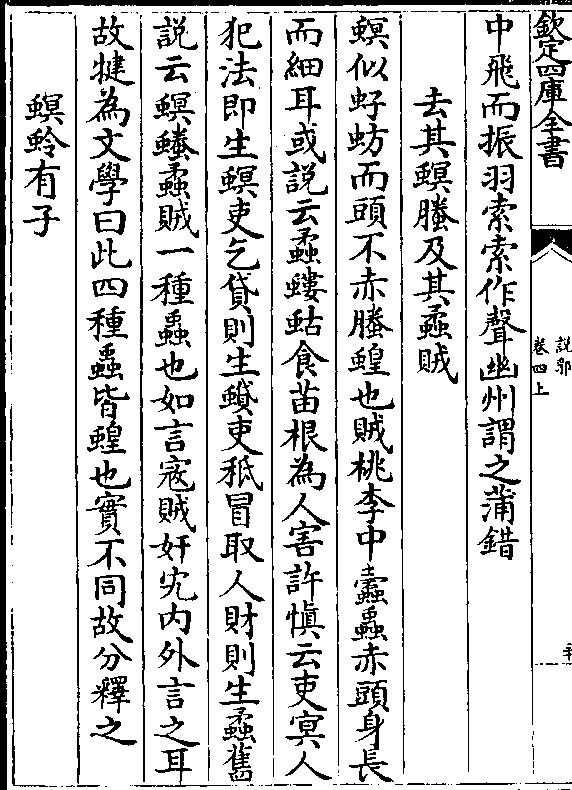 欽定四庫全書
說郛
卷四上
中飛而振羽索索作聲幽州謂之蒲錯
去其螟螣及其蟊賊
螟似虸蚄而頭不赤螣蝗也賊桃李中蠹蟲赤頭身長
而細耳或說云蟊螻蛄食苗根為人害許慎云吏冥人
犯法即生螟吏乞貸則生蟘吏秖冒取人財則生蟊舊
說云螟螣蟊賊一種蟲也如言寇賊奸宄內外言之耳
故犍為文學曰此四種蟲皆蝗也實不同故分釋之
螟蛉有子